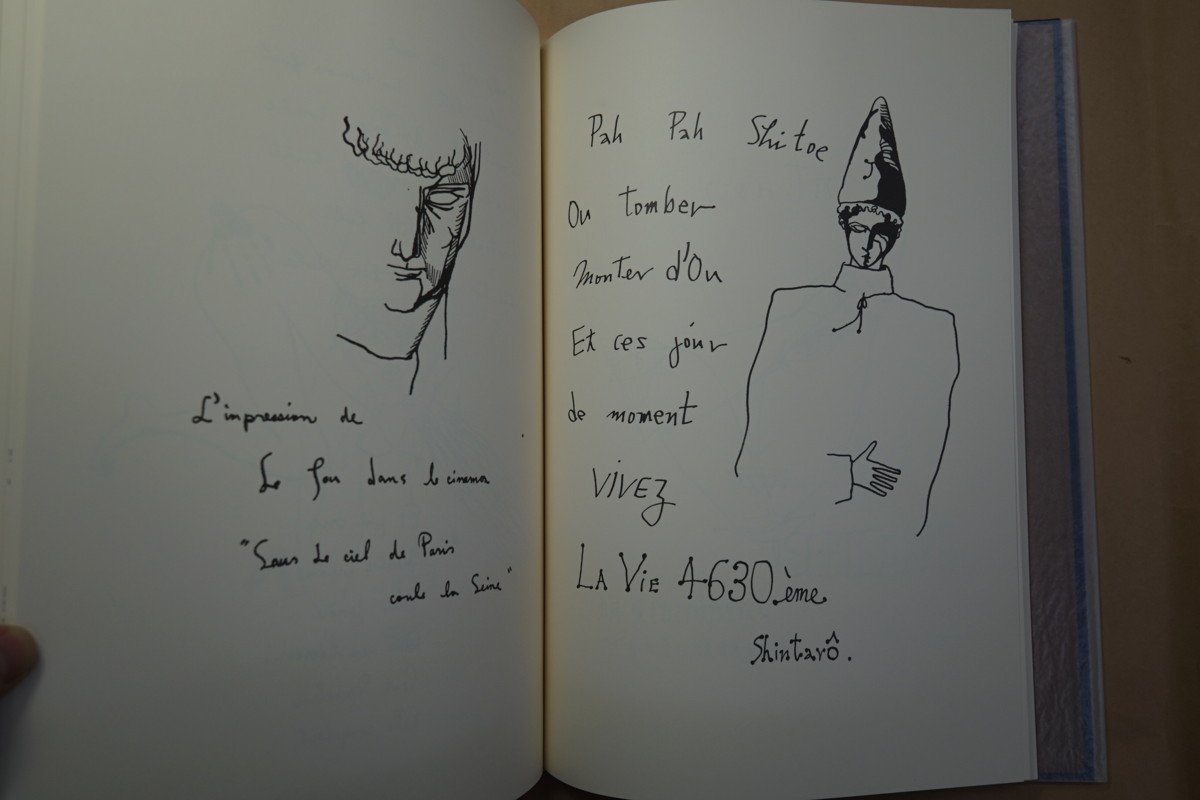 L'impression de
Le fou dans le cinema
"Sous Le ciel de Paris
coule la Seine"
Pah Pah Shitoe
Ou tomber
monter d'Ou
Et ces jour
de moment
VIVEZ
LA ViE 4630ème
Shintarô.